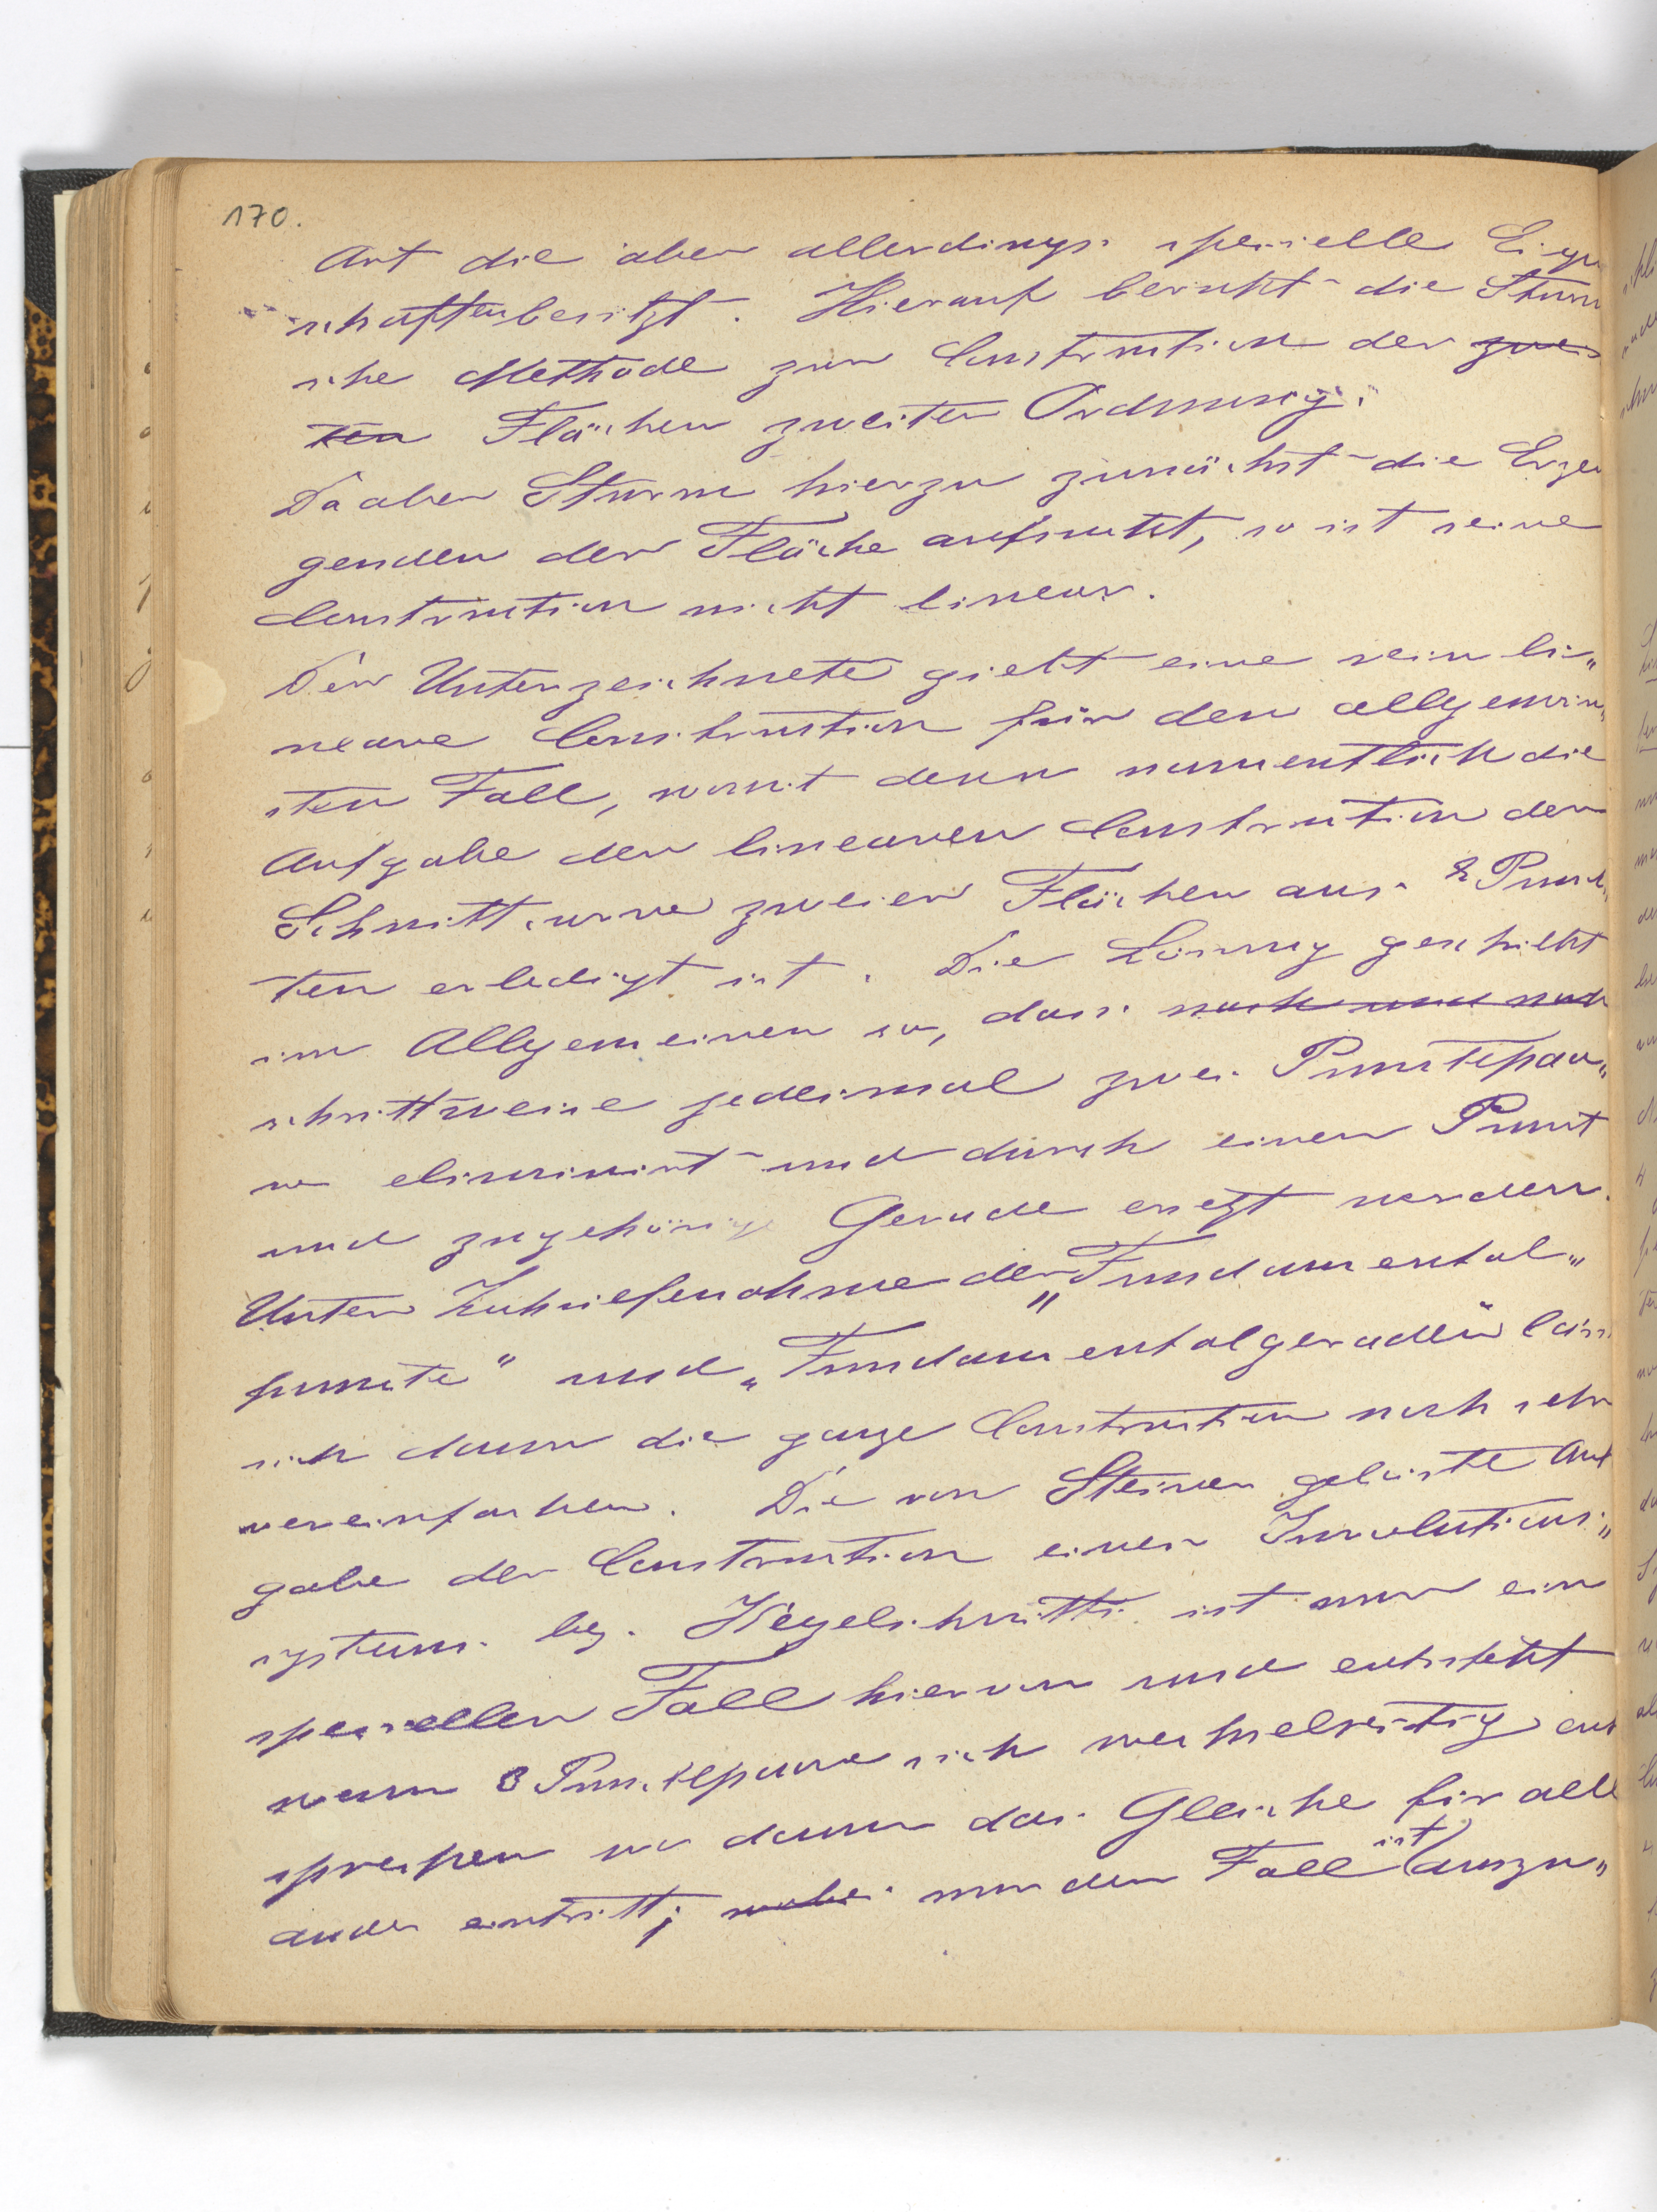 170.
Art die aber allerdings specielle Eigen
schaften besitzt. Hierauf beruht die Sturm
sche Methode zur Construction der zwei
ten Flächen zweiter Ordnung.
Da aber Sturm hierzu zunächst die Erzeu
genden der Fläche aufsucht, so ist seine
Construction nicht linear.
Der Unterzeichnete giebt eine rein li„
neare Construction für den allgemein„
sten Fall, womit denn namentlich die
Aufgabe der linearen Construction der
Schnittcurve zweier Flächen aus 8 Punk„
ten erledigt ist. Die Lösung geschieht
im Allgemeinen so, dass nach und nach
schrittweise jedesmal zwei Punctepaa„
re eliminirt und durch einen Punct
und zugehörige Gerade ersetzt werden.
Unter Zuhielfenahme der „Fundamental„
puncte" und „Fundamentalgeraden" läss
sich dann die ganze Construction noch sehr
vereinfachen. Die von Steiner gelöste Auf
gabe der Construction eines Involutions„
systems bez. Kegelschnitts ist nur ein
speciellen Fall hiervon und entsteht
wenn 3 Punctepaare sich wechselseitig ent
sprechen wo dann das Gleiche für alle
ander eintritt; wobei nur der Fall ist auszu„